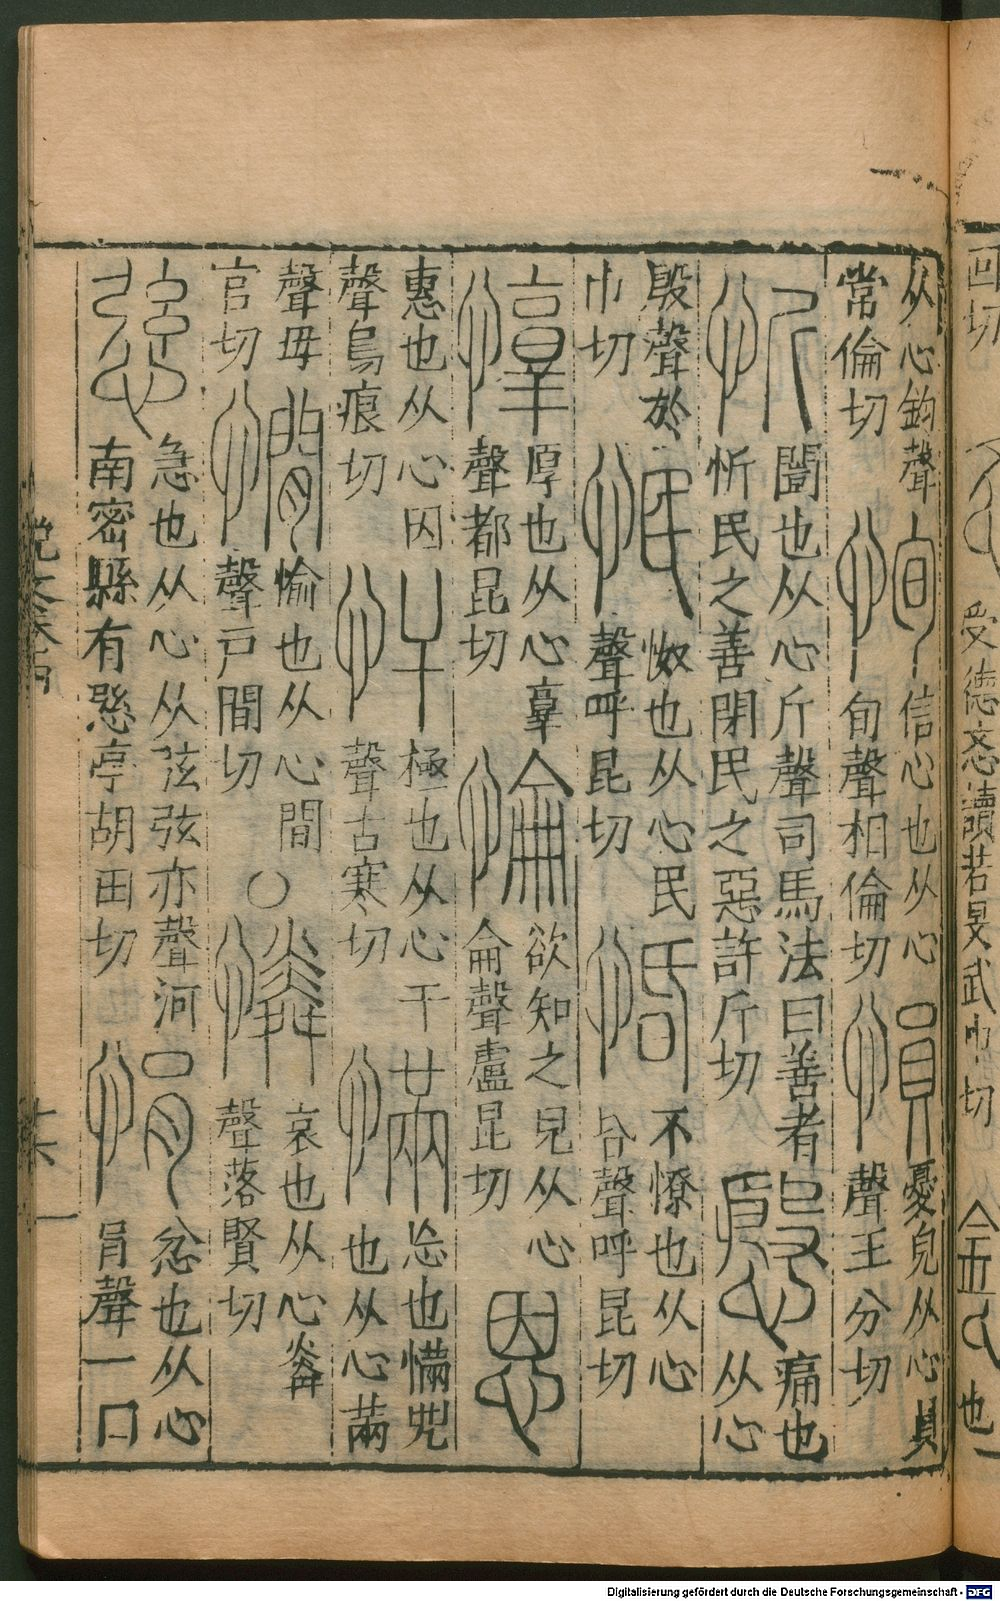 回切
受德忞讀若旻武巾切
也一
从心鈞聲
常倫切
恂
信心也从心
旬聲相倫切
愪
憂皃从心員
聲王分切
忻
闓也从心斤聲司馬法曰善者
忻民之善閉民之惡許斤切
慇
痛也
从心
殷聲於
巾切
怋
怓也从心民
聲呼昆切
惛
不憭也从心
昏聲呼昆切
惇
厚也从心𦎫
聲都昆切
惀
欲知之皃从心
侖聲盧昆切
恩
惠也从心因
聲烏痕切
忓
極也从心干
聲古寒切
慲
忘也慲兜
也从心㒼
聲毋
官切
憪
愉也从心間
聲戶間切
○
憐
哀也从心粦
聲落賢切
㥦
急也从心从弦弦亦聲河
南密縣有㥦亭胡田切
悁
忿也从心
肙聲一曰
Digitalisierung gefördert durch die Deutsche Forschungsgemeinschaft - DFG